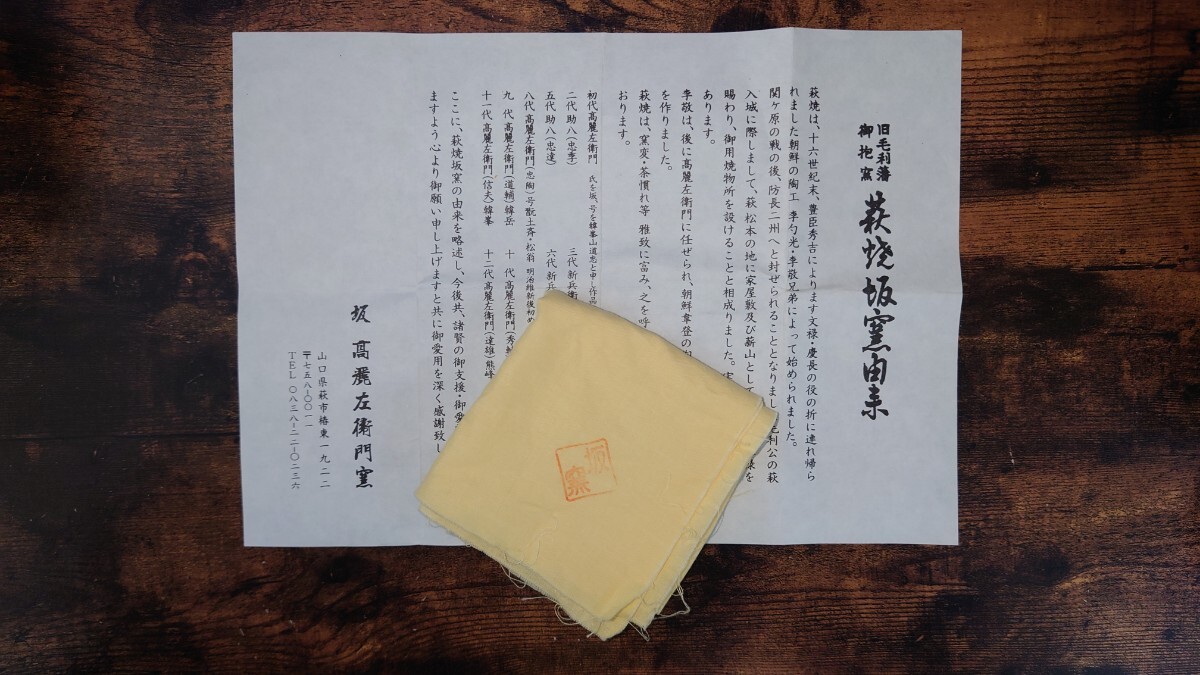 旧毛利藩
御抱窯
萩焼坂窯由来
萩焼は、十六世紀末、豊臣秀吉によります文禄・慶長の役の折に連れ帰ら
れました朝鮮の陶工 李勺光・李敬兄弟によって始められました。
関ヶ原の戦の後、防長二州へと封ぜられることとなりまし 毛利公の萩
入城に際しまして、萩 松本の地に家屋敷及び薪山として 様を
賜わり、御用焼物所を設けることと相成りました。
あります。
李敬は、後に高麗左衛門に任ぜられ、朝鮮韋登の
を作りました。
萩焼は、窯変・茶慣れ等 雅致に富み、之を呼
おります。
初代高麗左衛門 氏を坂、号を韓峯山道忠と申し作品
二代助八(忠季) 三代新兵衛
五代助八(忠達) 六代新兵
八代高麗左衛門(忠陶)号翫土斉・松翁 明治維新後初め
九 代高麗左衛門(道輔)韓岳 十 代高麗左衛門(秀
十一代高麗左衛門(信夫)韓峯 十二代高麗左衛門(達雄)熊峰
ここに、萩焼坂窯の由来を略述し、今後共、諸賢の御支援・御愛
ますよう心より御願い申し上げますと共に御愛用を深く感謝致し
坂 高麗左衛門窯
山口県萩市椿東一九二二
〒七五八-〇〇一一
TEL 〇八三八-二二-〇二三六
坂
窯